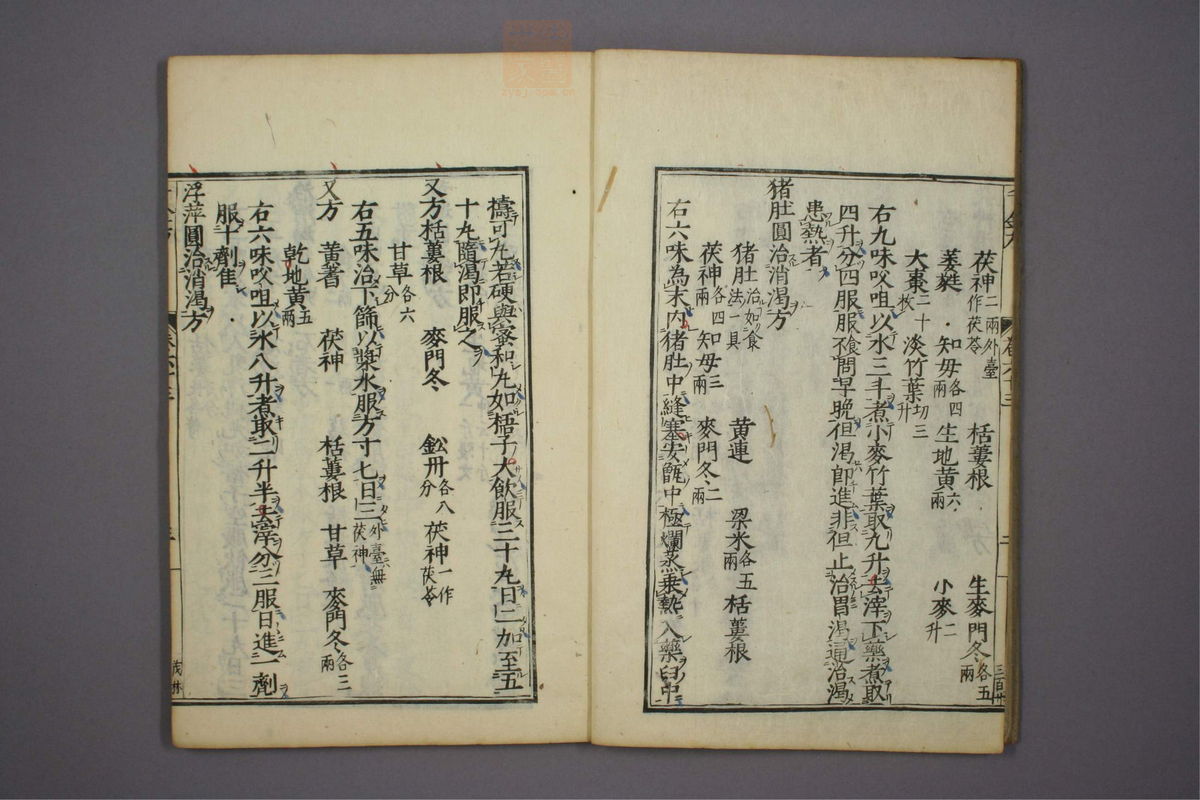 茯神二兩外臺作茯苓 栝蔞根 生麥門冬各五兩
葳蕤 知母各四兩 生地黃六兩 小麥二升
大棗二十枚 淡竹葉切三升
右九味㕮咀以水三斗煮小麥竹葉取九升去滓下藥煮取
四升分四服不問早晚但渴即進非但止治胃渴通治渴
患熱者
猪肚圓治消渴方
猪肚治如食法一具 黃連 粱米各五兩 栝蔞根
茯神各四兩 知母三兩 麥門冬二兩
右六味為末內猪肚中縫塞安甑中極爛蒸乘熱入藥臼中
擣可丸若硬與蜜和丸如梧子大飲服三十丸日二加至五
十丸隨渴即服之
又方栝蔞根 麥門冬 鈆丹各八分 茯神一作茯苓
甘草各六分
右五味治下篩以漿水服方寸七日三外臺無茯神
又方 黃耆 茯神 栝蔞根 甘草 麥門冬各三兩
乾地黃五兩
右六味㕮咀以水八升煮取二升半去滓分三服日進一劑
服十劑佳
浮萍圓治消渴方